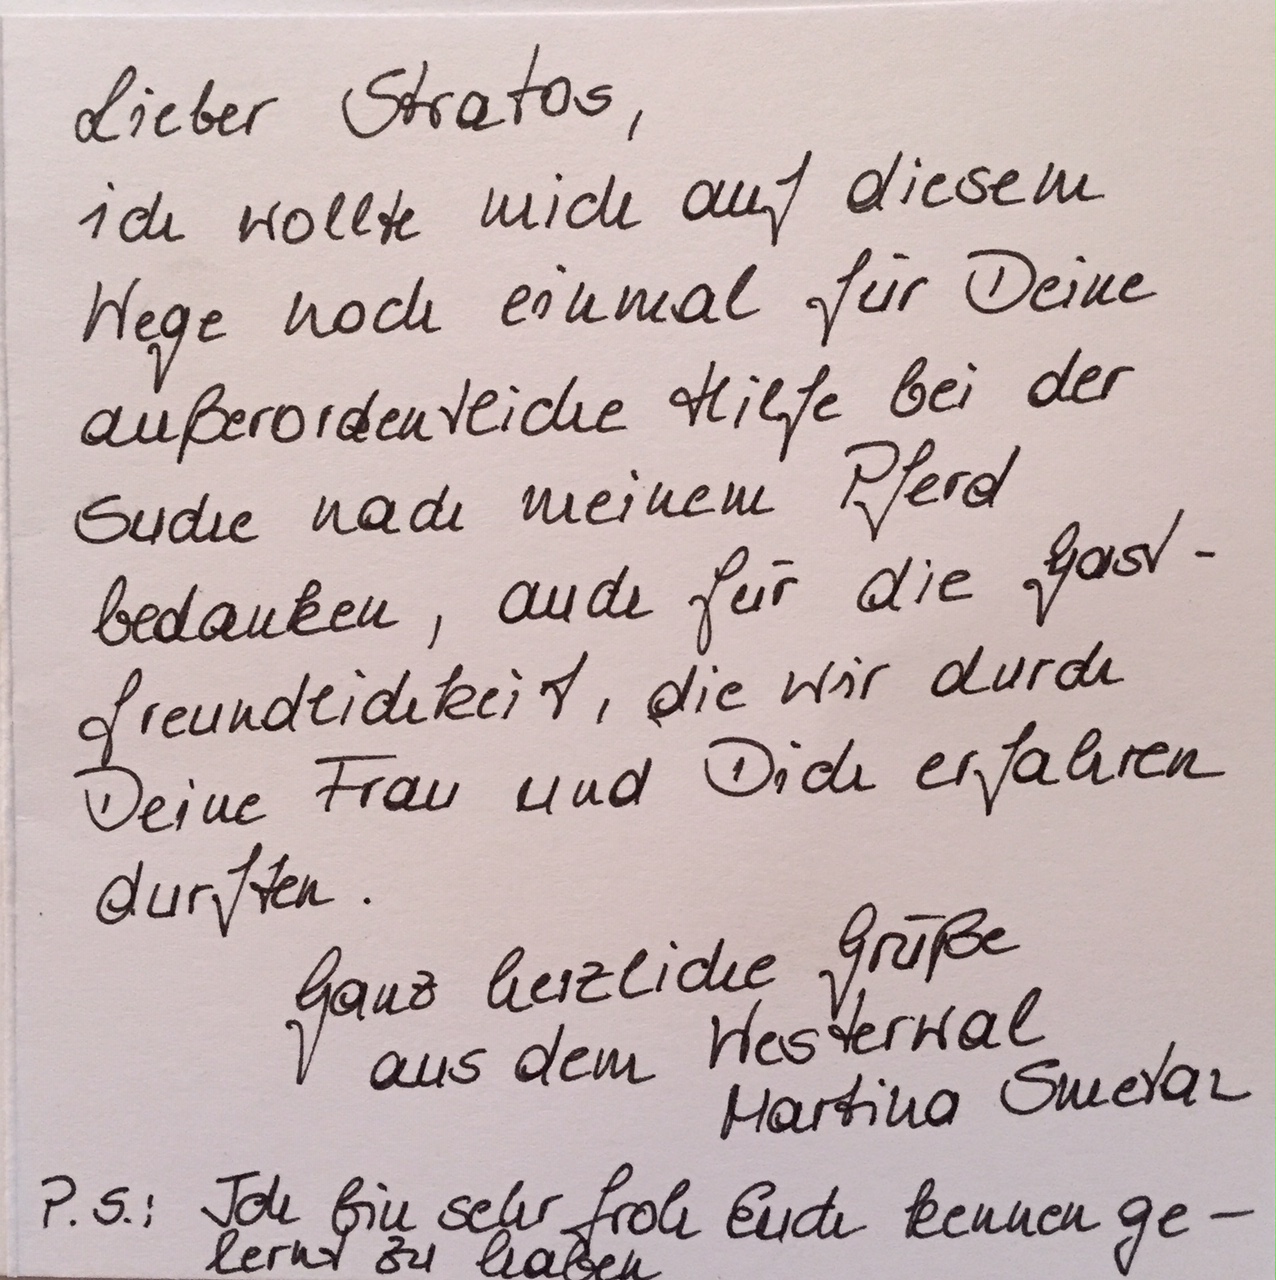 Lieber Stratos,
ich wollte mich auf diesem
Wege noch einmal für Deine
außerordentliche Hilfe bei der
Suche nach meinem Pferd
bedanken, auch für die Gast-
freundlichkeit, die wir durch
Deine Frau und Dich erfahren
durften.
Ganz herzliche Grüße
aus dem Westerwal
Martina
P.S.: Ich bin sehr froh Euch kennen ge-
lernt zu haben